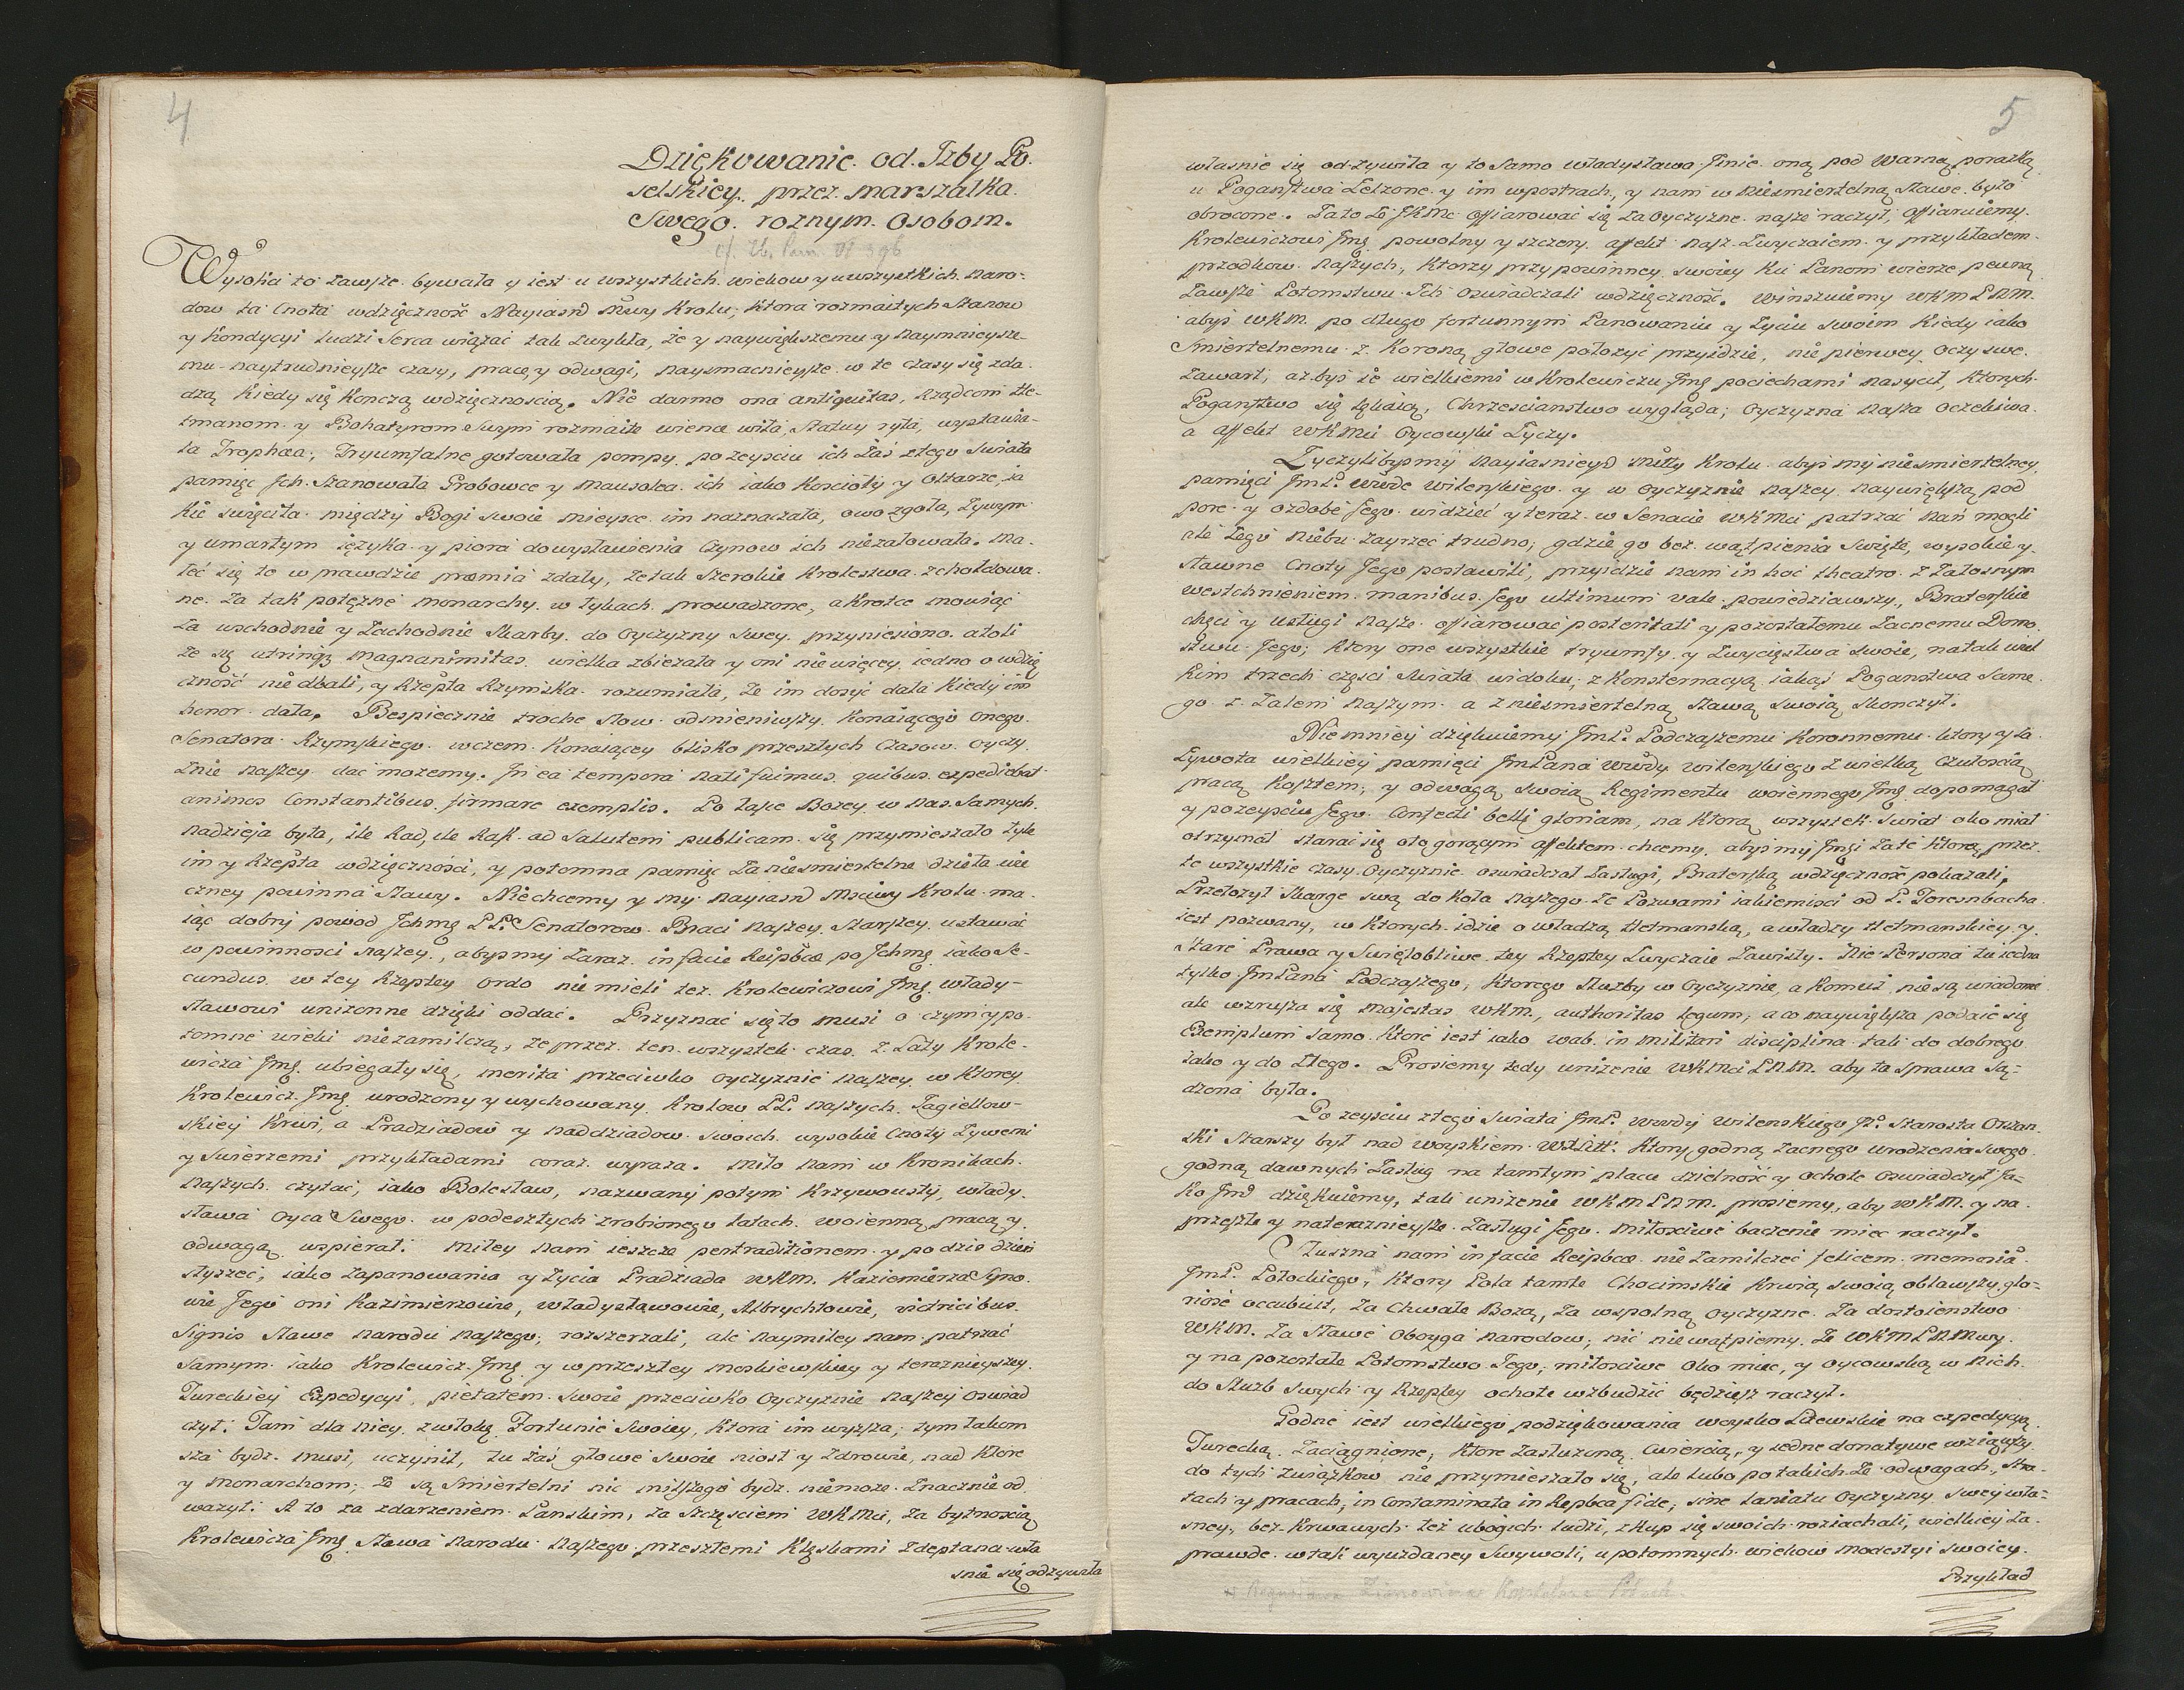 4
Dziękowanie. od. Izby Po.
selskiey. przez. marszałka.
Swego. roznym. Osobom.
Wysoka to zawsze. bywała y iest u wszystkich. wiekow y u wszystkich. naro-
dow ta Cnota wdzięczność Nayiasń Mćwy Krolu; ktora rozmaitych Stanow
y Kondycyi ludzi Serca wiązać tak zwykła, że y naywiększemu y naymnieysze-
mu naytrudnieysze czasy, prace, y odwagi, naysmacnieysze. w te czasy się zda.
dzą kiedy się kończą wdzięcznoscią. Nie darmo ona antiquitas, Rządcom He-
tmanom. y Bohatyrom Swym rozmaite wience wiła, Statuy ryła, wystawia-
ła Trophæa; Tryumfalne gotowała pompy. po zeysciu ich zaś z tego Swiata
pamięc Ich. Szanowała Grobowce y Mausolea. ich iako Koscioły y Ołtarze, ia
kie swięciła. między Bogi swoie mieysce im naznaczała, owo zgoła, żywym
y umarłym ięzyka y piora do wysławienia Czynow ich nie załowała. Ma-
łeć się te w prawdzie præmia zdały, że tak Szerokie Krolestwa. zchołdowa.
ne. za tak potęzne monarchy. w łykach. prowadzone, a krotce mowiąc
za wschodnie y zachodnie Skarby. do Oyczyzny swey. przyniesiono. atoli
że się utrinq; magnanimitas. wielka zbiezała y oni nie więcey, iedno o wdzię
czność nie dbali, y Rzepta Rzymska. rozumiała, że im dosyć dała kiedy im
honor. dała. Bespiecznie troche słow. odmieniwszy. konaiącego onego.
Senatora Rzymskiego. wczem. konaiącey blisko przeszłych Czasow. Oyczy.
znie naszey dać mozemy. In ea tempora nati fuimus. quibus. expediebat
animos Constantibus. firmare exemplis. Po łasce Bozey w nas. Samych.
nadzieja była, ile Rad, ile Rąk. ad Salutem publicam. się przymieszało tyle
im y Rzepta wdzięczności, y potomna pamięc za niesmiertelne dzieła wie
czney powinna Sławy. Niechcemy y my. nayiasń Msciwy Krolu. ma.
iąc dobry powod Ichmę PP. Senatorow. Braci naszey. Starszey. ustawać
w powinnosci naszey., abysmy zaraz. in facie Reipbcæ po Ichmę iako Se-
cundus. w tey Rzeptey ordo nie mieli tez. Krolewiczowi Jmę. włady-
sławowi unizonne dzięki oddać. Przyznać się to musi o czym y po-
tomne wieki nie zamilczą, że przez. ten. wszystek czas. z. Laty Krole-
wicza Jmę. ubiegały się, merita przeciwko oyczyznie naszey. w ktorey
Krolewicz. Jmę. urodzony y wychowany. Krolow PP. naszych. Jagiellow-
skiey Krwi, a Pradziadow y naddziadow. swoich. wysokie Cnoty żywemi
y swierzemi przykładami coraz. wyraza. miło nam w Kronikach.
naszych. czytać, iako Bolesław, nazwany potym Krzywousty, włady.
sława Oyca Swego. w podeszłych zrobionego latach. woienną pracą y.
odwagą. wspierał. miley nam ieszcze per traditionem. y po dzis dzień
słyszeć, iako zapanowania y życia Pradziada WKM. Kazimierza Syno.
wie Jego oni Kazimierzowie, Władysławowie, Albrychtowie, victricibus.
Signis Sławe narodu naszego; rozszerzali, ale naymiley nam. patrzać
Samym. iako Krolewicz. Jmę y w przeszłey moskiewskiey y terazneyszey.
Tureckiey Expedycyi, pietatem. swoie przeciwko Oyczyznie naszey oswiad
czył. Tam dla niey. zwłokę Fortunie Swoiey, ktora im wyzsza, tym łakom
sza bydz. musi, uczynił, tu zaś głowe swoie niosł y zdrowie, nad ktore
y Monarchom; że są Smiertelni nic milszego bydz. nie moze. znacznie od.
wazył. A to za zdarzeniem Panskim, za Szczęsciem WKMci, za bytnoscią
Krolewicza Jmę Sława narodu naszego przeszłemi Klęskami zdeptana wła
snie się odzywiła
5
własnie się od-zywiła y to Samo władysława Imie. oną pod Warną porazką
u Pogaństwa zelzone y im w postrach, y nam w niesmiertelną Sławe. było
obrocone. Za to że JKMć offiarować się za Oyczyzne. nasze raczył; offiaruiemy.
Krolewiczowi Jmę. powolny y szczery. affekt nasz. zwyczaiem. y przykładem.
przodkow naszych, ktorzy przy powinney. swoiey ku Panom wierze pewną
zawsze Potomstwu Ich oswiadczali wdzięczność. Winszuiemy WKM PNM.
abyś WKM. po długo fortunnym Panowaniu y życiu swoim kiedy iako
Smiertelnemu z. Koroną głowe położyć przyidzie, nie pierwey oczy swe.
zawarł, az byś ie wielkiemi w Krolewiczu Jmę pociechami nasycił, ktorych.
Pogaństwo się lękaią, Chrzescianstwo wygląda; Oyczyzna nasza oczekiwa.
a affekt WKMci Oycowski życzy.
Zyczylibysmy nayiasnieyś miłty Krolu. abyś my niesmiertelney.
pamięci JmP. Wwde Wilenskiego. y w Oyczyznie naszey. naywiększą pod
pore y ozdobe Jego. widzieć y teraz. w Senacie WKMci patrzać nań mogli
ale Tego niebu zayrzeć trudno; gdzie go bez. wątpienia Swięte, wysokie y.
sławne Cnoty Jego postawili, przyidzie nam in hoc theatro. z załosnym
westchnieniem. manibus. Jego ultimum vale. powiedziawszy., Braterskie
chęci y usługi nasze. offiarować posteritati y pozostałemu zacnemu Domo.
stwu. Jego; ktory one wszystkie tryumfy. y zwycięstwa swoie, na tak wiel
kim trzech części Swiata widoku; z Konsternacyą iakaś Poganstwa Same.
go z. żalem naszym. a z niesmiertelną Sławą swoią skonczył.
Nie mniey dziękuiemy JmP. Podczaszemu Koronnemu. ktory y za.
żywota wielkiey pamięci JmPana Wwdy wilenskiego z wielką czułoscią
pracą kosztem, y odwagą swoią Regimentu woiennego Jmę dopomagał
y po zeysciu Jego. Confecti belli gloriam, na ktorą wszystek. Swiat oko miał
otrzymał starać się oto gorącym affektem chcemy, abysmy Jmęi za te ktorą przez.
te wszystkie czasy. Oyczyznie oswiadczał zasługi, Braterską wdzięczność pokazali.
Przełozył skarge swą do koła naszego. że Pozwami iakiemisci od P. Forensbacha
iest pozwany, w ktorych idzie o władzą Hetmanską, a władzy Hetmanskiey y.
stare Prawa y Swiętobliwe tey Rzeptey zwyczaie zawisły. Nie Persona tu iedna
tylko JmPana Podczaszego, ktorego Sluzby w Oyczyznie, a komuz nie są wiadome
ale wzrusza się majestas WKM., authoritas legum, a co naywiększa podaie się
Exemplum samo. ktore iest iako wab. in militari disciplina tak do dobrego.
iako y do złego. Prosiemy tedy unizenie WKMci PNM. aby ta sprawa są-
dzona była.
Po zeysciu z tego Swiata JmP. Wwdy Wilenskiego P. Starosta Orszan.
ski Starszy był nad woyskiem WXLitt. ktory godną zacnego urodzenia swego.
godną dawnych zasług na tamtym placu dzielność y ochote oswiadczył Ja-
ko Jmę dziękuiemy, tak unizenie WKM PNM. prosiemy, aby WKM. y na.
przeszłe y naterazneysze zasługi Jego. miłosciwe baczenie miec raczył.
Słuszna nam in facie Reipbcæ nie zamilczeć felicem. memoriã.
JmP. Potockiego;* ktory Pola tamte Chocimskie krwią swoią oblawszy. glo-
riosè occubuit, za chwałe Bozą, za wspolną Oyczyzne. za dostoienstwo.
WKM. za sławe oboyga narodow; nic nie wątpiemy. że WKM PNMwy.
y na pozostałe Potomstwo Jego, miłosciwe oko miec, y oycowską w nich.
do słuzb swych y Rzeptey ochote wzbudzić będziesz raczył.
Godne iest wielkiego podziękowania woysko Litewskie na expedycyą
Turecką. zaciągnione, ktore zasłuzoną. cwiercią, y iedne donatywe wziąwszy
do tych związkow nie przymieszało się, ale lubo po takich. że odwagach, stra-
tach y pracach, in Contaminata in Repbca fide, sine laniatu Oyczyzny swey wła-
sney, bez krwawych łez ubogich ludzi, z kup się swoich roziachali, wielkiey za-
prawde. w tak wyuzdaney Swywoli, u potomnych wiekow modestyi swoiey.
Przykład